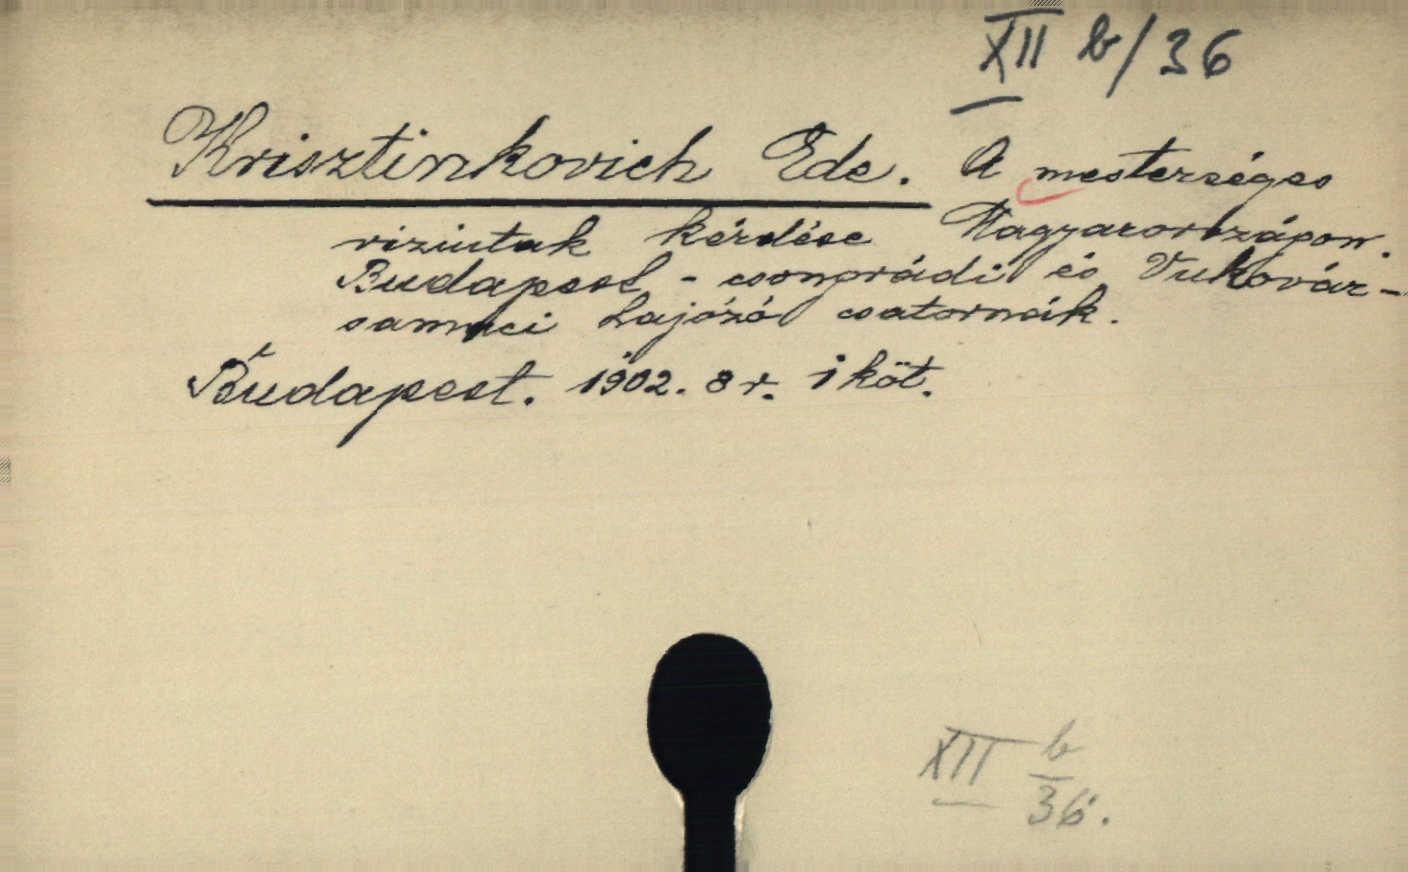 XII b/36
Krisztinkovich Ede. A mesterséges
viziutak kérdése Magyarországon.
Budapest - csongrádi és Vukovár-
samaci hajózó csatornák.
Budapest. 1902. 8 r. 1 köt.
XII b
36.